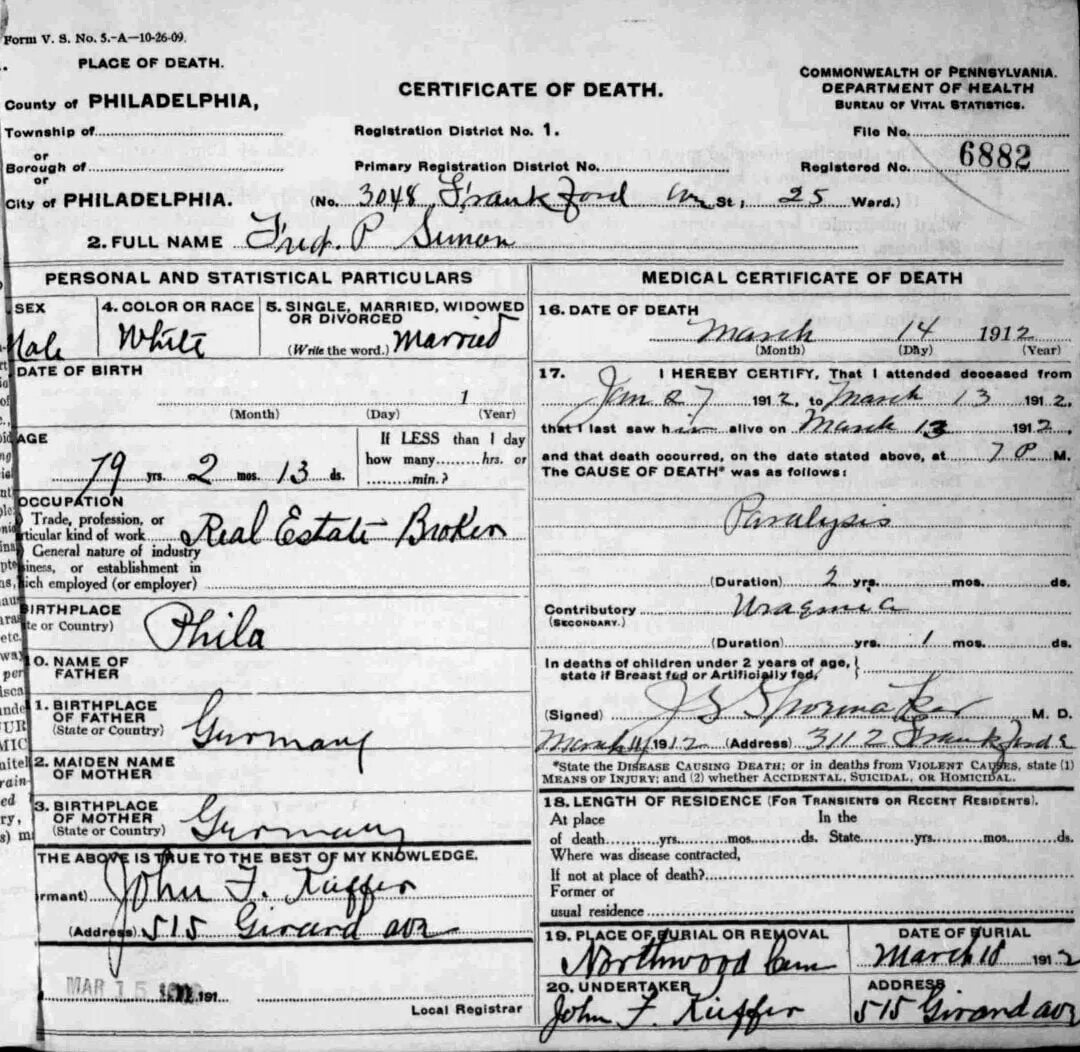 Form V. S. No. 5.-A—10-26-09.
PLACE OF DEATH.
County of PHILADELPHIA,
Township of
or
Borough of
or
City of PHILADELPHIA.
CERTIFICATE OF DEATH.
COMMONWEALTH OF PENNSYLVANIA.
DEPARTMENT OF HEALTH
BUREAU OF VITAL STATISTICS.
Registration District No. 1.
File No.
Primary Registration District No.
Registered No. 6882
(No. 3048 Frankford Ave St; 25 Ward.)
2. FULL NAME Fred. P Simon
PERSONAL AND STATISTICAL PARTICULARS
SEX
Male
4. COLOR OR RACE
White
5. SINGLE, MARRIED, WIDOWED
OR DIVORCED
(Write the word.) Married
DATE OF BIRTH
1
(Month) (Day) (Year)
AGE
79 yrs. 2 mos. 13 ds.
If LESS than 1 day
how many hrs. or
min.?
OCCUPATION
Trade, profession, or
rticular kind of work Real Estate Broker
General nature of industry
siness, or establishment in
hich employed (or employer)
BIRTHPLACE
te or Country)
Phila
0. NAME OF
FATHER
1. BIRTHPLACE
OF FATHER
(State or Country)
Germany
2. MAIDEN NAME
OF MOTHER
3. BIRTHPLACE
OF MOTHER
(State or Country)
Germany
THE ABOVE IS TRUE TO THE BEST OF MY KNOWLEDGE.
rmant) John F. Kuffer
(Address) 515 Girard ave
MAR 15 191
Local Registrar
MEDICAL CERTIFICATE OF DEATH
16. DATE OF DEATH
March 14 1912
(Month) (Day) (Year)
17. I HEREBY CERTIFY, That I attended deceased from
Jan 27 1912, to March 13 1912,
that I last saw him alive on March 13 1912
and that death occurred, on the date stated above, at 7 P M.
The CAUSE OF DEATH* was as follows:
Paralysis
(Duration) 2 yrs. mos. ds.
Contributory Uraemia
(SECONDARY.)
(Duration) yrs. 1 mos. ds.
In deaths of children under 2 years of age,
state if Breast fed or Artificially fed,
(Signed) M. D.
March 1912 (Address) 3112 Frankford
*State the DISEASE CAUSING DEATH; or in deaths from VIOLENT CAUSES, state (1)
MEANS OF INJURY; and (2) whether ACCIDENTAL, SUICIDAL, OR HOMICIDAL.
18. LENGTH OF RESIDENCE (FOR TRANSIENTS OR RECENT RESIDENTS).
At place In the
of death yrs. mos. ds. State yrs. mos. ds.
Where was disease contracted,
If not at place of death?
Former or
usual residence
19. PLACE OF BURIAL OR REMOVAL
Northwood Cem
DATE OF BURIAL
March 18 1912
20. UNDERTAKER
John F. Kuffer
ADDRESS
515 Girard ave